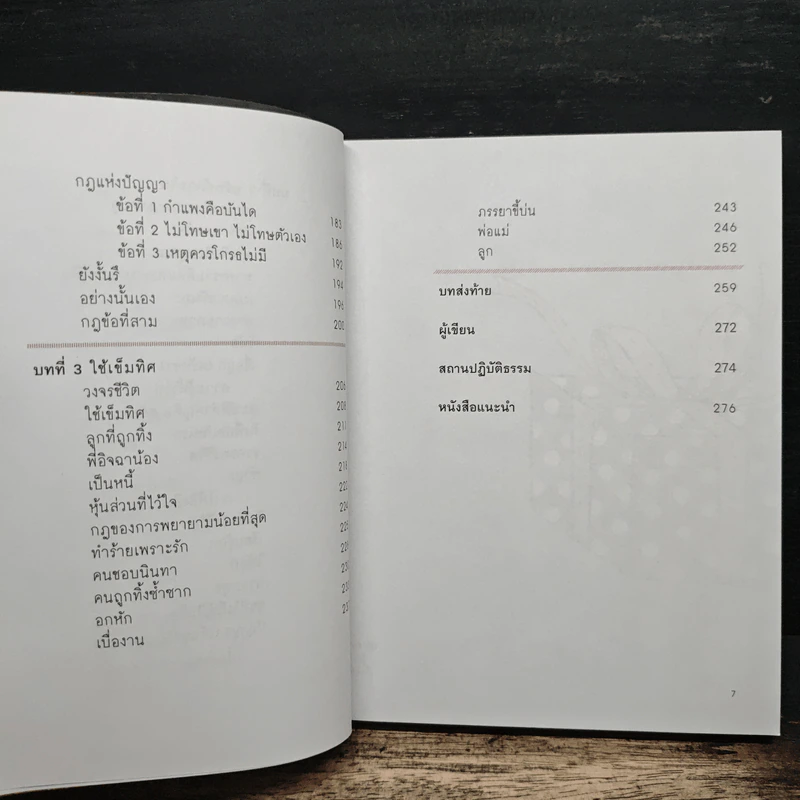 กฎแห่งปัญญา
ข้อที่ 1 กำแพงคือบันได 183
ข้อที่ 2 ไม่โทษเขา ไม่โทษตัวเอง 186
ข้อที่ 3 เหตุควรโกรธไม่มี 192
ยังงั้นรึ 194
อย่างนั้นเอง 196
กฎข้อที่สาม
บทที่ 3 ใช้เข็มทิศ
วงจรชีวิต 206
ใช้เข็มทิศ 208
ลูกที่ถูกทิ้ง 211
พี่อิจฉาน้อง 214
เป็นหนี้ 218
หุ้นส่วนที่ไว้ใจ
กฎของการพยายามน้อยที่สุด
ทำร้ายเพราะรัก
คนชอบนินทา
คนถูกทิ้งซ้ำซาก
อกหัก
เบื่องาน
ภรรยาขี้บ่น 243
พ่อแม่ 246
ลูก 252
บทส่งท้าย 259
ผู้เขียน 272
สถานปฏิบัติธรรม 274
หนังสือแนะนำ 276
7